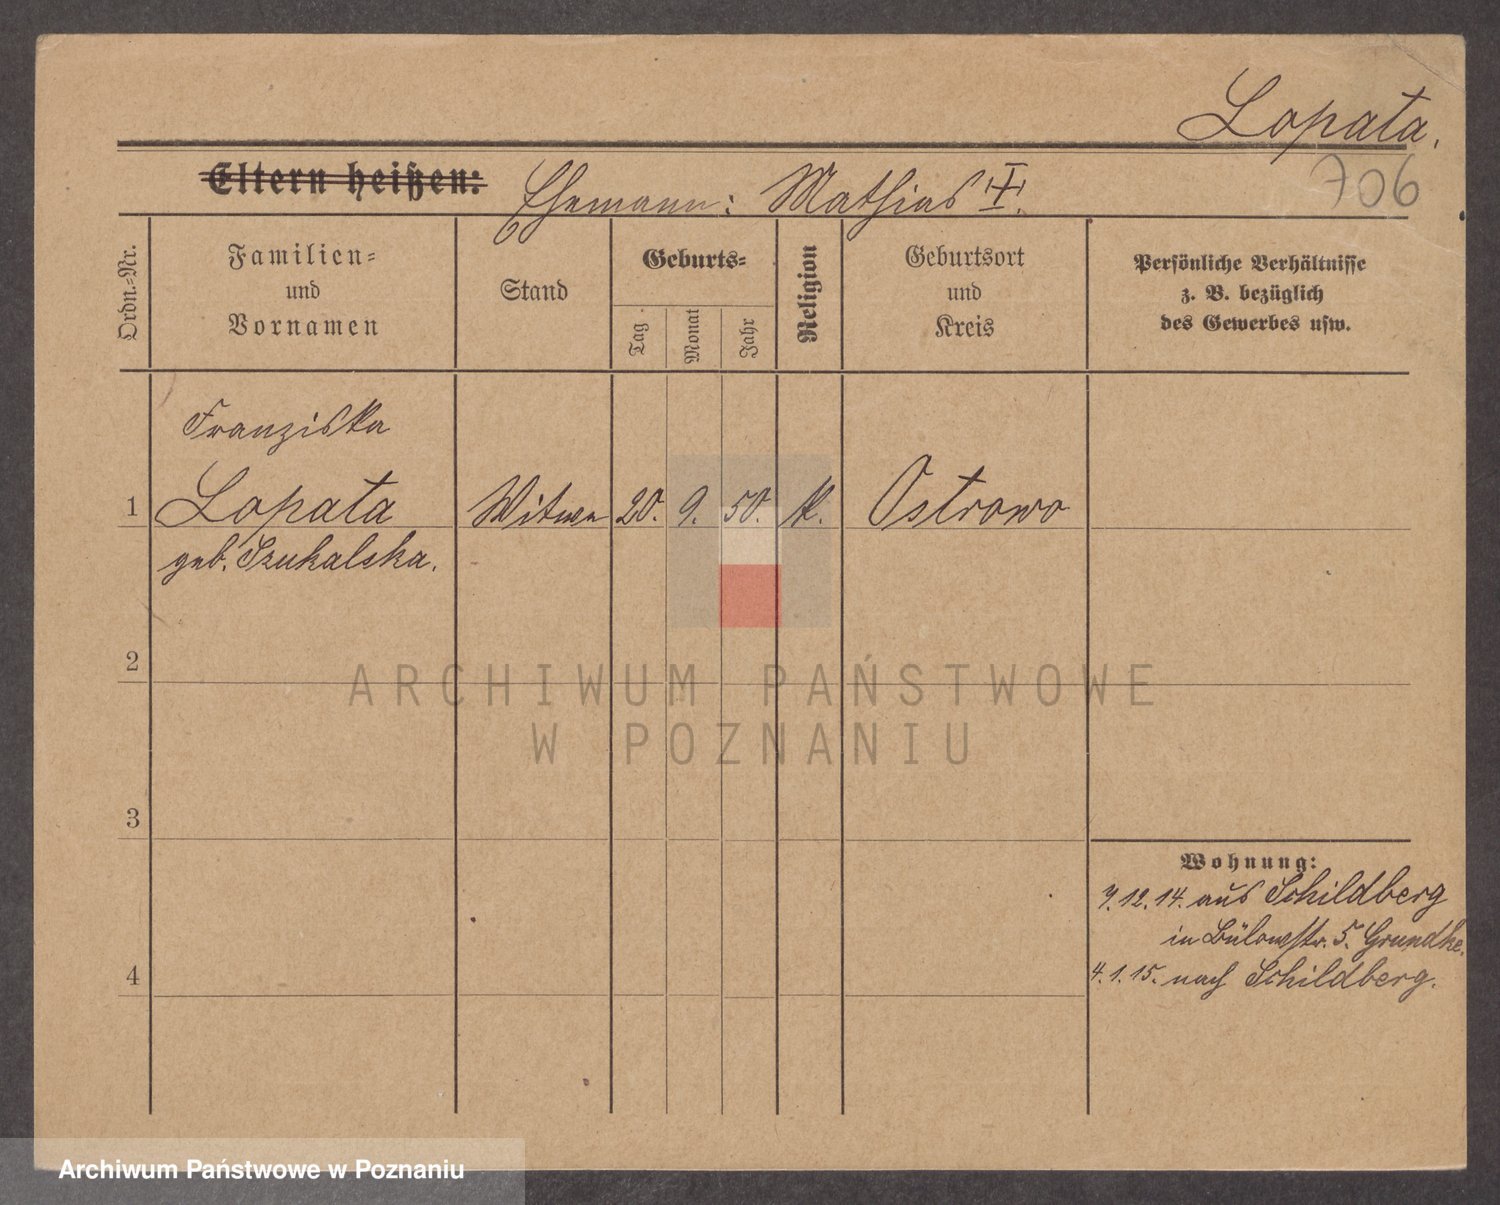 Lopata.
706
Eltern heißen: Ehemann: Mathias
Ordn.-Nr.
Familien-
und
Vornamen
Stand
Geburts-
Tag
Monat
Jahr
Religion
Geburtsort
und
Kreis
Persönliche Verhältnisse
z. B. bezüglich
des Gewerbes usw.
Franziska
1 Lopata Witwe 20. 9. 50. k. Ostrowo
geb. Szukalska.
2
3
4
Wohnung:
7.12.14. aus Schildberg
in Bülowstr. 5. Grundke.
4.1.15. nach Schildberg.
ARCHIWUM PAŃSTWOWE
W POZNANIU
Archiwum Państwowe w Poznaniu